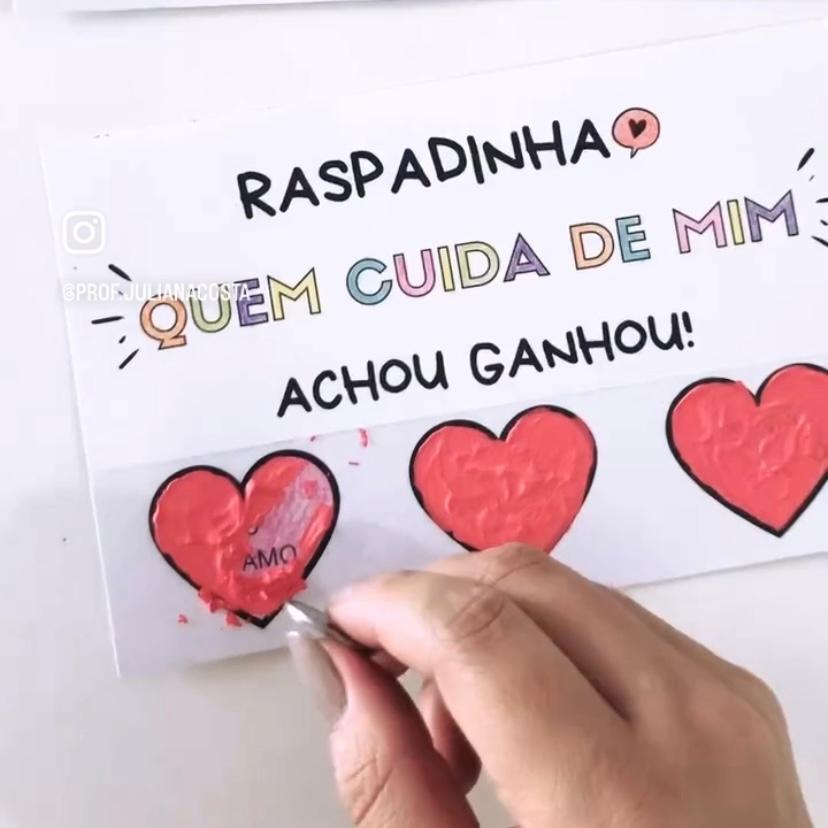 RASPADINHA
QUEM CUIDA DE MIM
@PROF.JULIANACOSTA
ACHOU GANHOU!
AMO